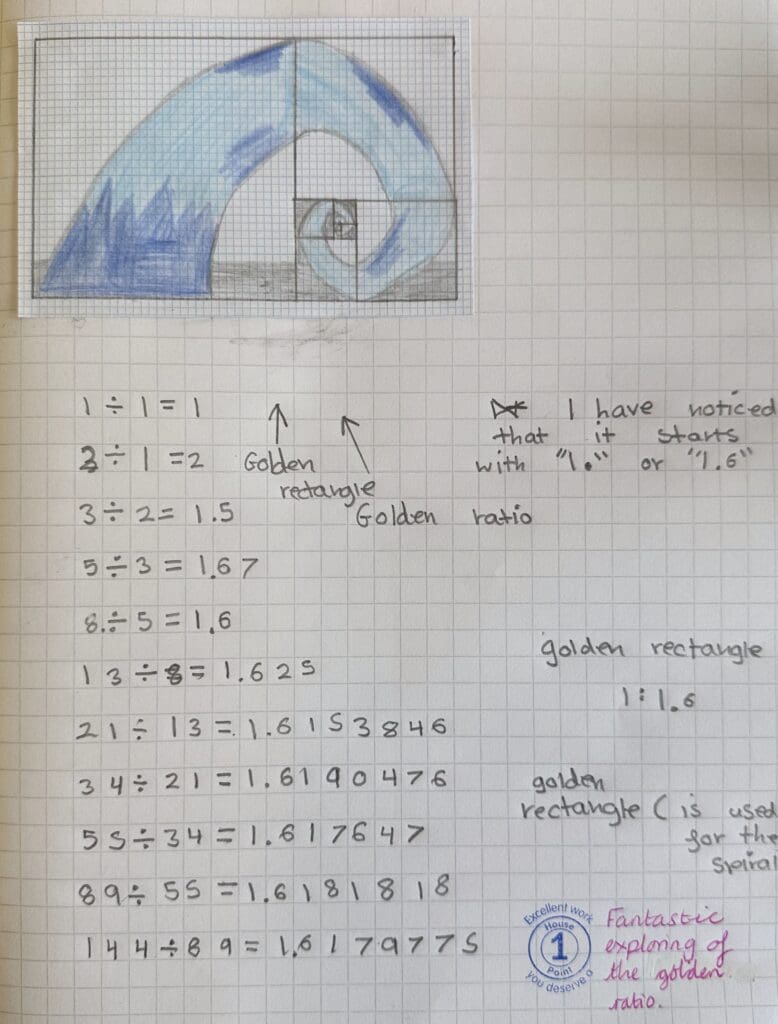 1 ÷ 1 = 1
2 ÷ 1 = 2
3 ÷ 2 = 1.5
5 ÷ 3 = 1.67
8 ÷ 5 = 1.6
13 ÷ 8 = 1.625
21 ÷ 13 = 1.6153846
34 ÷ 21 = 1.6190476
55 ÷ 34 = 1.617647
89 ÷ 55 = 1.6181818
144 ÷ 89 = 1.6179775
Golden
rectangle
Golden ratio
I have noticed
that it starts
with "1." or "1.6"
golden rectangle
1:1.6
golden
rectangle ( is used
for the
spiral
Excellent work
House
1
Point
you deserve a
Fantastic
exploring of
the golden
ratio.